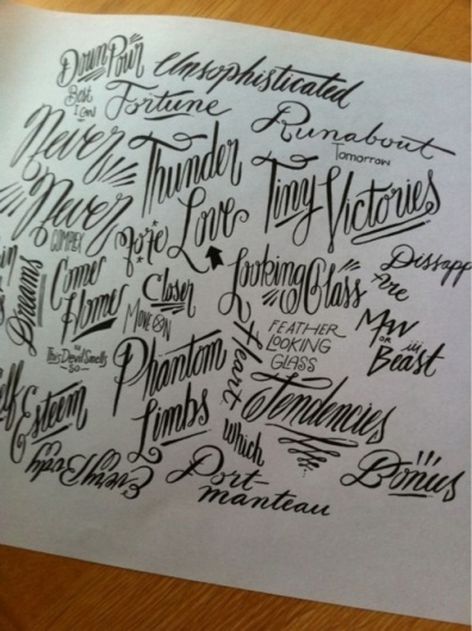 Down Pour
Unsophisticated
Best
I Can
Fortune
Runabout
Tomorrow
Never
Never
Thunder
Love
Tiny Victories
Come
Home
Dreams
Closer
Move On
Looking Glass
Are
Dissapp
Man
or
Beast
Feather
Looking
Glass
Heart
This Devil Smells
So
Phantom
Limbs
Esteem
Tendencies
which
Every Body
Port-
manteau
Bonus